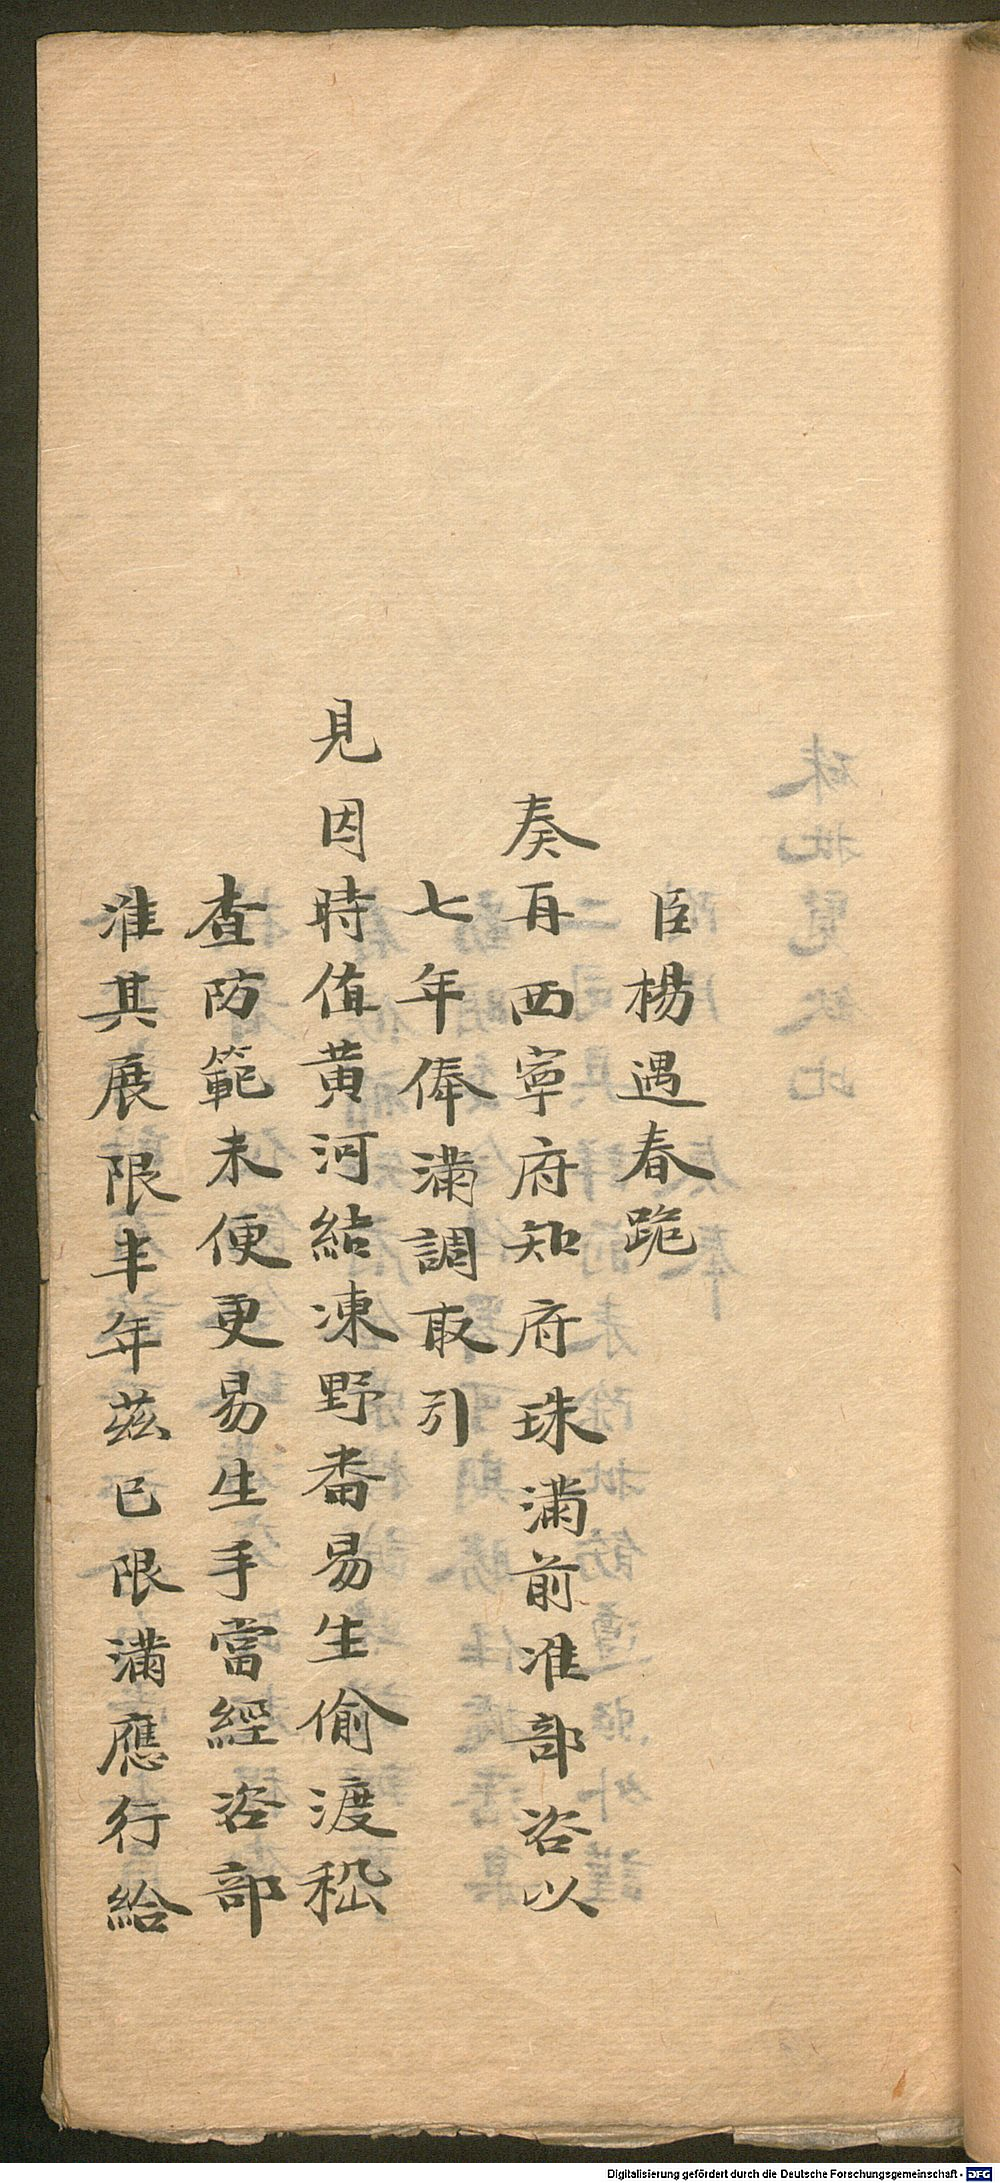 臣楊遇春跪
奏再西寧府知府珠滿前准部咨以
七年俸滿調取引
見因時值黃河結凍野番易生偷渡稽
查防範未便更易生手當經咨部
准其展限半年茲已限滿應行給
Digitalisierung gefördert durch die Deutsche Forschungsgemeinschaft - DFG